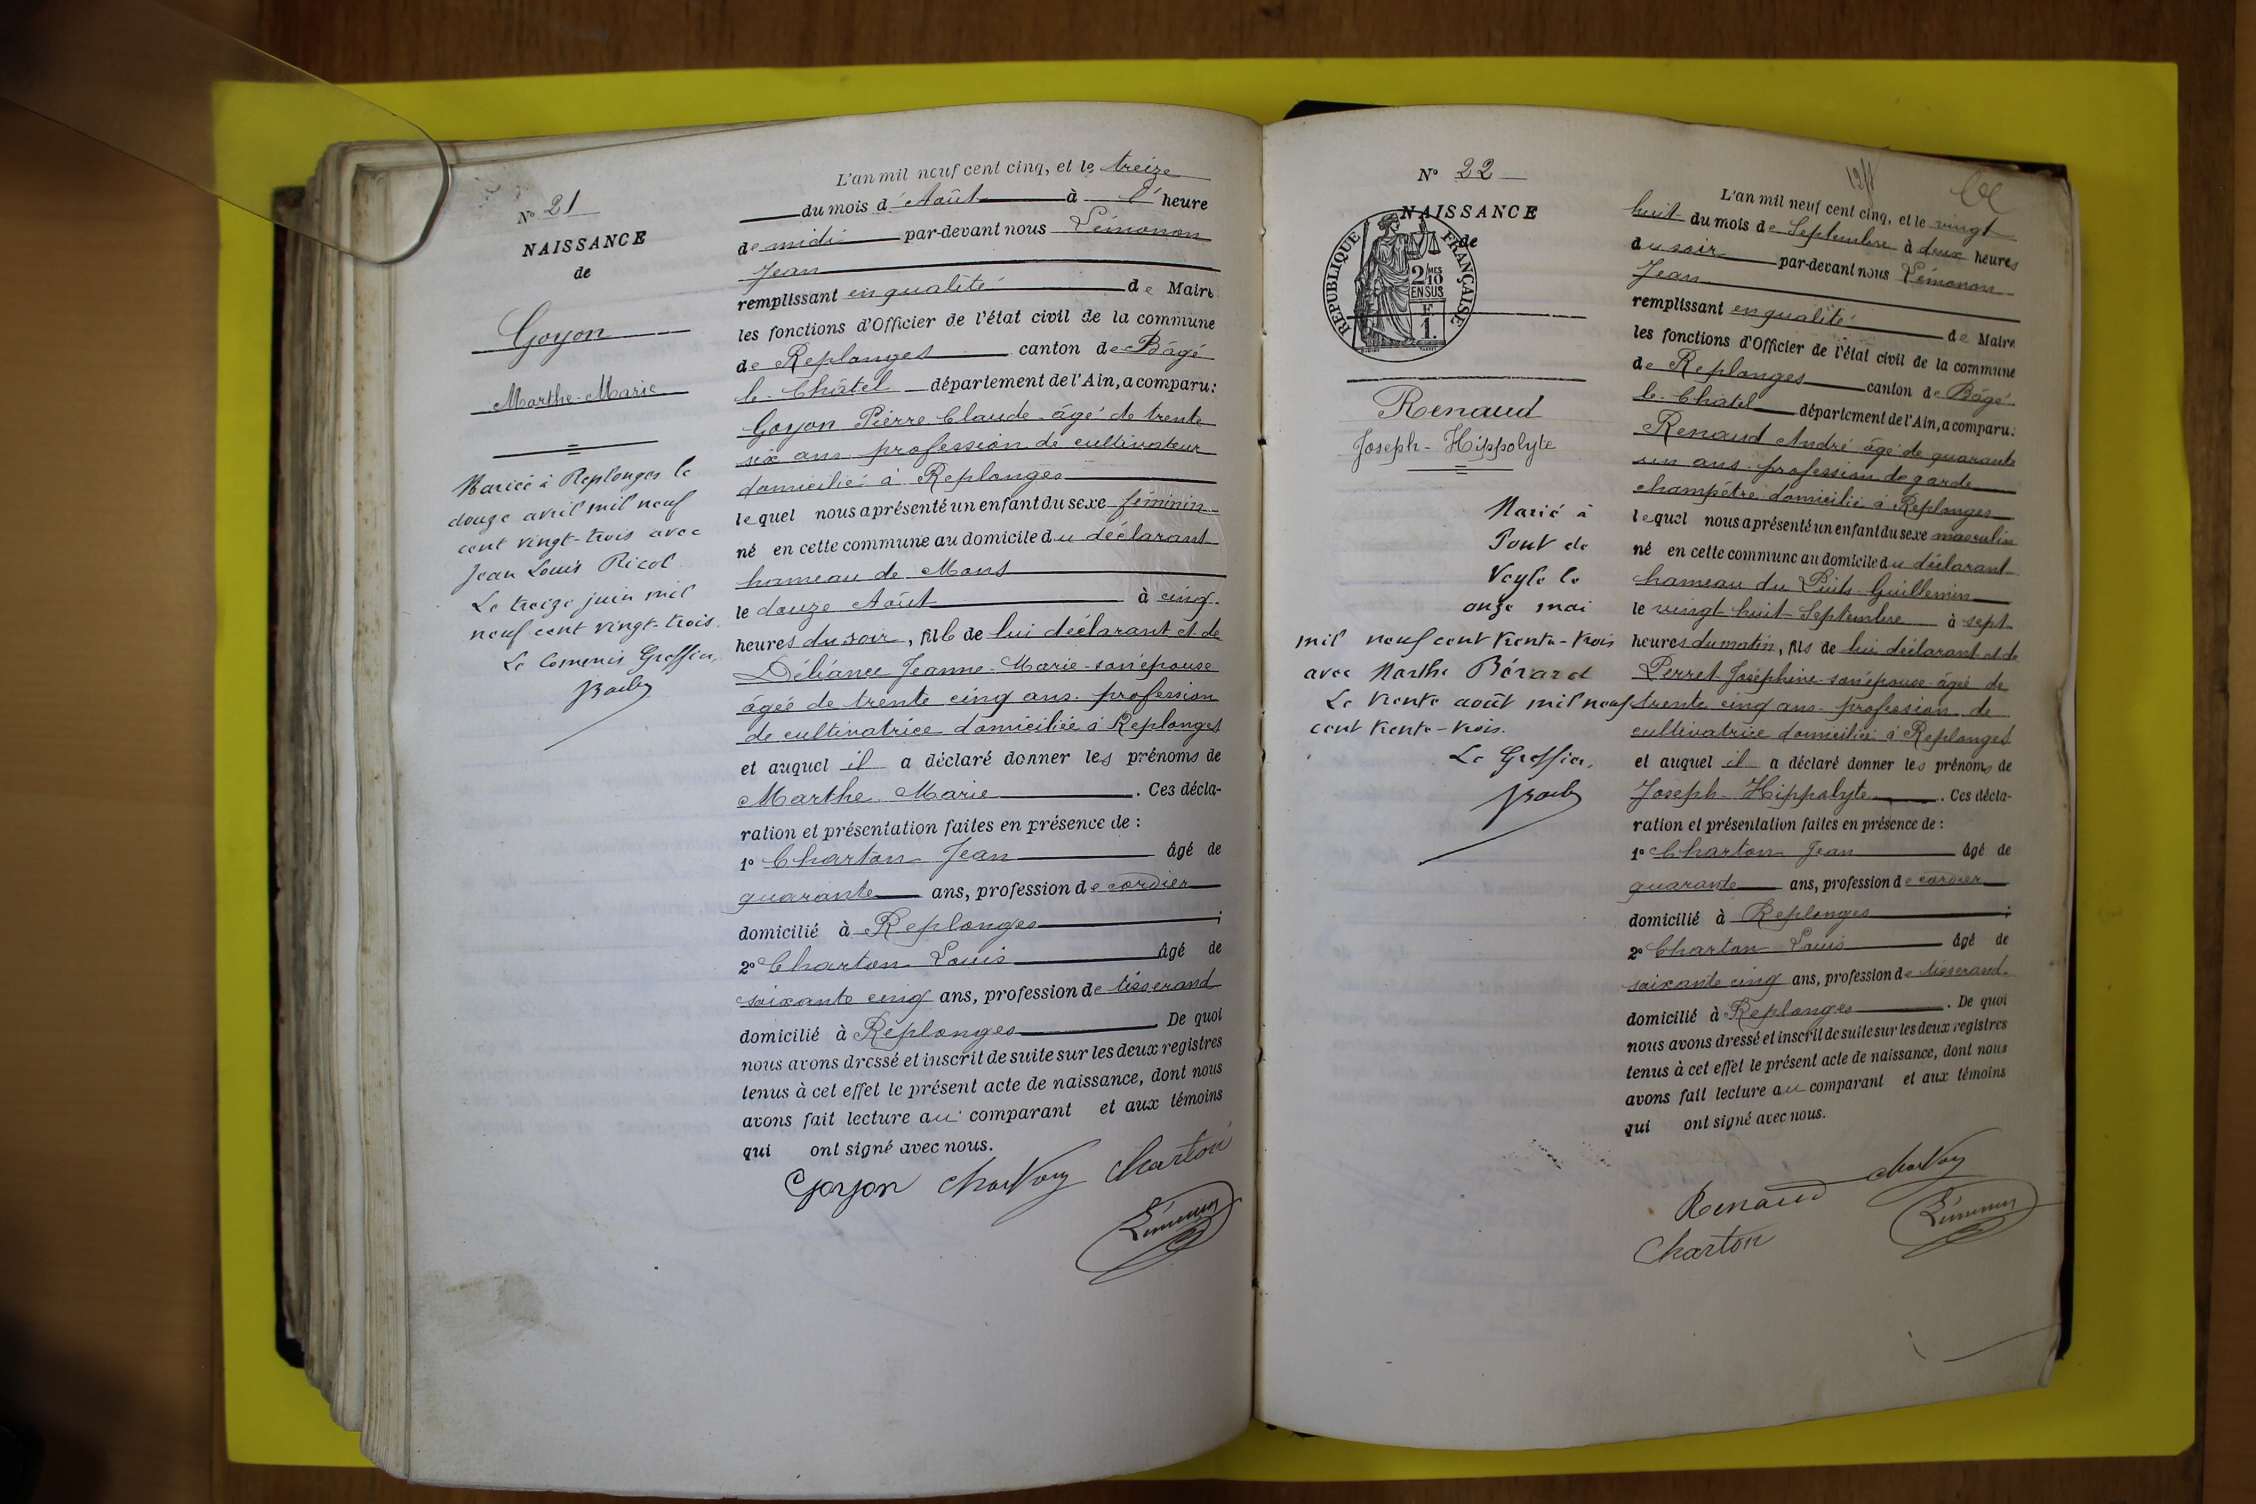 N° 21
NAISSANCE
de
Goyon
Marthe-Marie
Mariée à Replonges le
douze avril mil neuf
cent vingt-trois avec
Jean Louis Ricol
Le treize juin mil
neuf cent vingt-trois.
Le Commis Greffier,
L'an mil neuf cent cinq, et le treize
du mois d'Août à l' heure
de midi par-devant nous Lémonon
Jean
remplissant en qualité de Maire
les fonctions d'Officier de l'état civil de la commune
de Replonges canton de Bâgé
le Châtel département de l'Ain, a comparu:
Goyon Pierre Claude âgé de trente
six ans profession de cultivateur
domicilié à Replonges
lequel nous a présenté un enfant du sexe féminin
né en cette commune au domicile du déclarant
hameau de Mons
le douze Août à cinq
heures du soir, fille de lui déclarant et de
Déliance Jeanne-Marie son épouse
âgée de trente cinq ans profession
de cultivatrice domiciliée à Replonges
et auquel il a déclaré donner les prénoms de
Marthe Marie. Ces décla-
ration et présentation faites en présence de :
1° Charton Jean âgé de
quarante ans, profession de cordier
domicilié à Replonges ;
2° Charton Louis âgé de
soixante cinq ans, profession de tisserand
domicilié à Replonges. De quoi
nous avons dressé et inscrit de suite sur les deux registres
tenus à cet effet le présent acte de naissance, dont nous
avons fait lecture au comparant et aux témoins
qui ont signé avec nous.
Goyon Charton
Lémonon
N° 22
NAISSANCE
de
RÉPUBLIQUE FRANÇAISE
2/10 MES
EN SUS
F
1
Renaud
Joseph-Hippolyte
Marié à
Pont de
Veyle le
onze mai
mil neuf cent trente-trois
avec Marthe Bérard
Le trente août mil neuf
cent trente-trois.
Le Greffier,
L'an mil neuf cent cinq, et le vingt
huit du mois de Septembre à deux heures
du soir par-devant nous Lémonon
Jean
remplissant en qualité de Maire
les fonctions d'Officier de l'état civil de la commune
de Replonges canton de Bâgé
le Châtel département de l'Ain, a comparu:
Renaud André âgé de quarante
un ans profession de garde
champêtre domicilié à Replonges
lequel nous a présenté un enfant du sexe masculin
né en cette commune au domicile du déclarant
hameau du Puits Guillemin
le vingt huit Septembre à sept
heures du matin, fils de lui déclarant et de
Perret Joséphine son épouse âgée de
trente cinq ans profession de
cultivatrice domiciliée à Replonges
et auquel il a déclaré donner les prénoms de
Joseph-Hippolyte. Ces décla-
ration et présentation faites en présence de :
1° Charton Jean âgé de
quarante ans, profession de cordier
domicilié à Replonges ;
2° Charton Louis âgé de
soixante cinq ans, profession de tisserand
domicilié à Replonges. De quoi
nous avons dressé et inscrit de suite sur les deux registres
tenus à cet effet le présent acte de naissance, dont nous
avons fait lecture au comparant et aux témoins
qui ont signé avec nous.
Renaud
Charton Lémonon